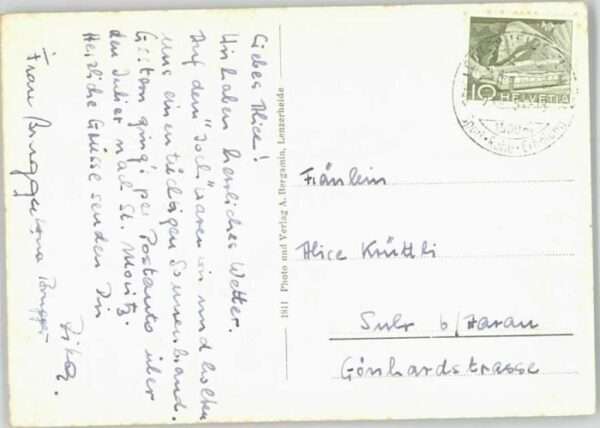 Liebes Alice!
Wir haben herrliches Wetter.
Auf dem "Joch" waren wir und holten
uns ein entzückigen Sonnenbrand.
Gestern ging's per Postauto über
den Julier nach St. Moritz.
Herzliche Grüsse senden Dir
Frau
1811 Photo und Verlag A. Bergamin, Lenzerheidesee
HELVETIA
10
Fräulein
Alice Krüttli
Suhr b/Aarau
Gönhardstrasse